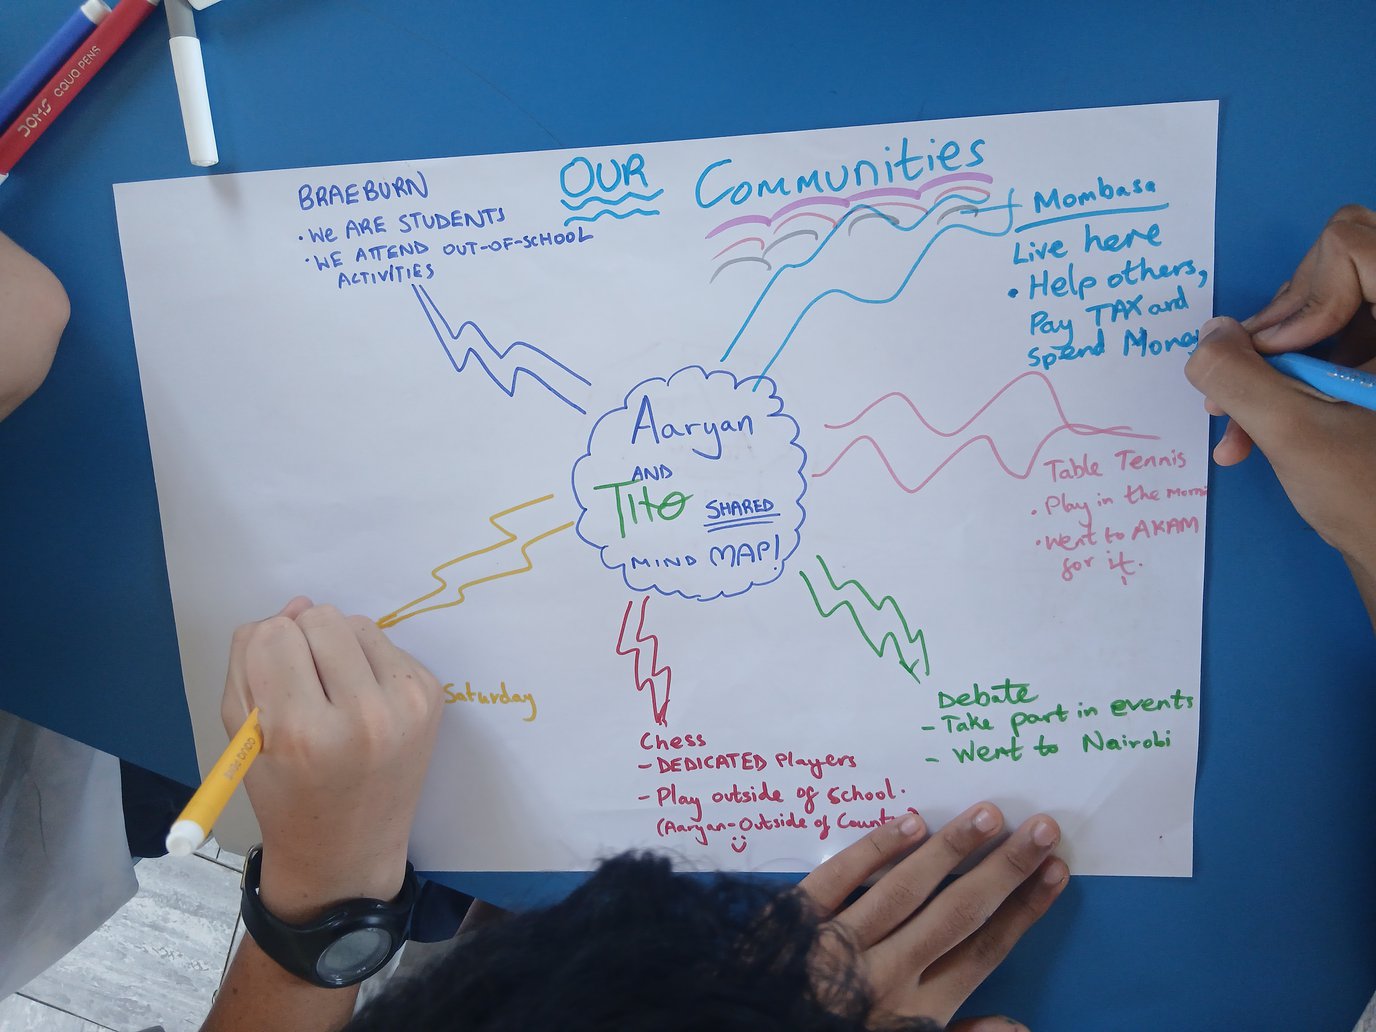 DOMS AQUA PENS
OUR Communities
BRAEBURN
• WE ARE STUDENTS
• WE ATTEND OUT-OF-SCHOOL
ACTIVITIES
Mombasa
Live here
• Help others,
Pay TAX and
spend Money
Aaryan
AND
Tito SHARED
MIND MAP!
Table Tennis
• Play in the
• Went to AKAM
for it.
Saturday
Debate
- Take part in events
- Went to Nairobi
Chess
- DEDICATED Players
- Play outside of school.
(Aaryan-Outside of